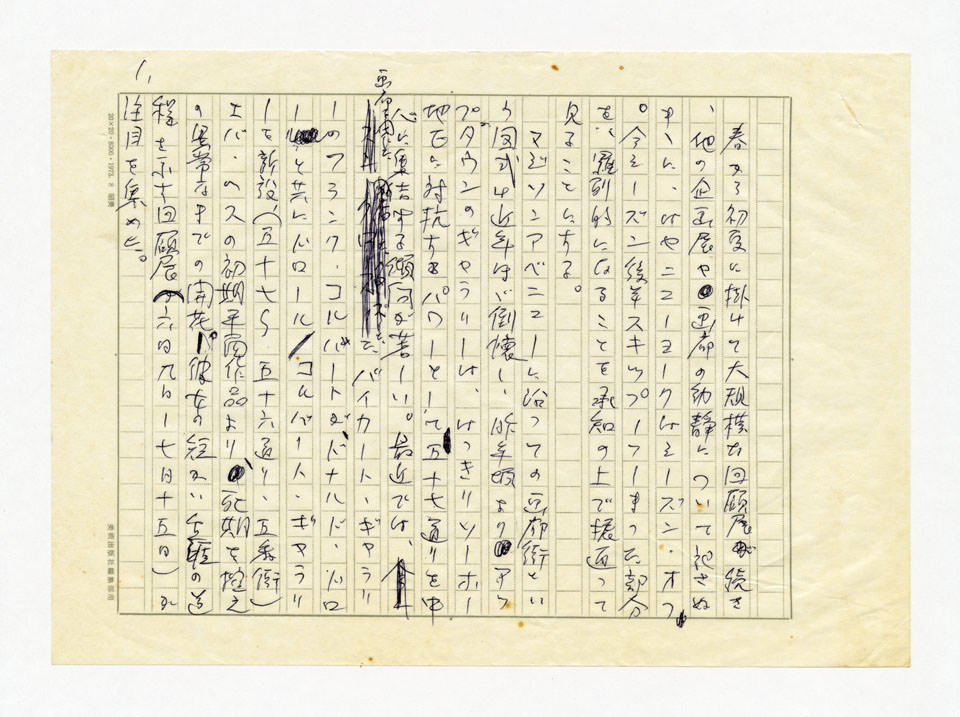 1,
春から初夏に掛けて大規模な回顧展が続き
、他の企画展や画廊の動静について記さぬ
まゝに、はやニューヨークはシーズン・オフ
。今シーズン後半スキップしてしまった部分
を、羅列的になることを承知の上で振返って
見ることにする。
マジソンアベニューに沿っての画廊街とい
う図式は近年ほゞ倒壊し、昨年頃よりアッ
プタウンのギャラリーは、はっきりソーホー
地区に対抗するパワーとして五十七通りを中
心に集合する傾向が著しい。最近では、
画廊を開いた。バイカート・ギャラリ
ーのフランク・コルバートが、ドナルド・ドロ
ールと共にドロール/コルバート・ギャラリ
ーを新設(五十七〜五十六通り、五番街)
エバ・ヘスの初期平面作品より、死期を控え
の異常なまでの開花、彼女の短かい生涯の道
程を示す回顧展(六日九日ー七日十五日)が
注目を集めた。
20×20・5000・1973.8